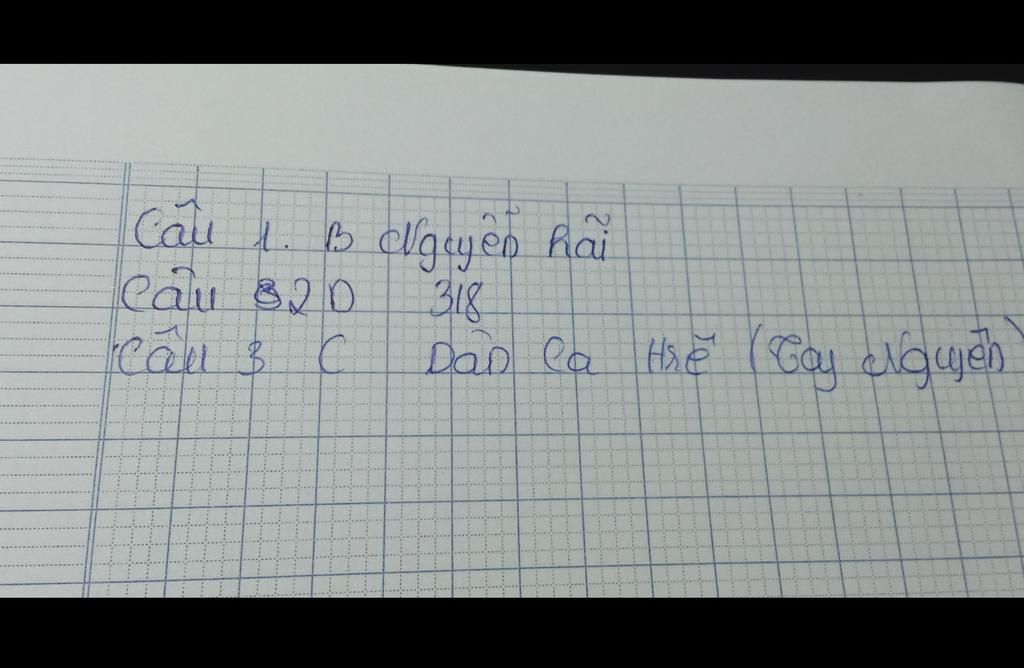 Câu 1. B Nguyễn Hãi
Câu 2 D 318
Câu 3 C Dân Ca Hrê (Tây Nguyên)